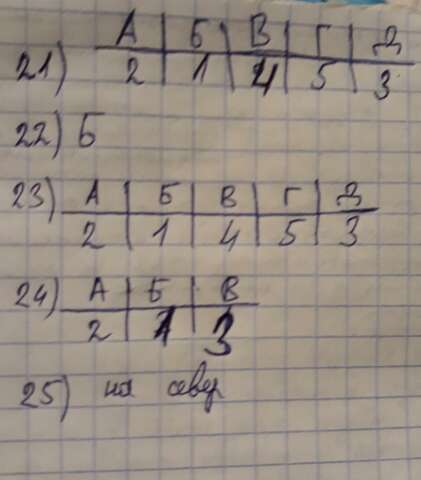 А Б В Г Д
21) 2 1 4 5 3
22) Б
23) А Б В Г Д
2 1 4 5 3
24) А Б В
2 1 3
25) на север